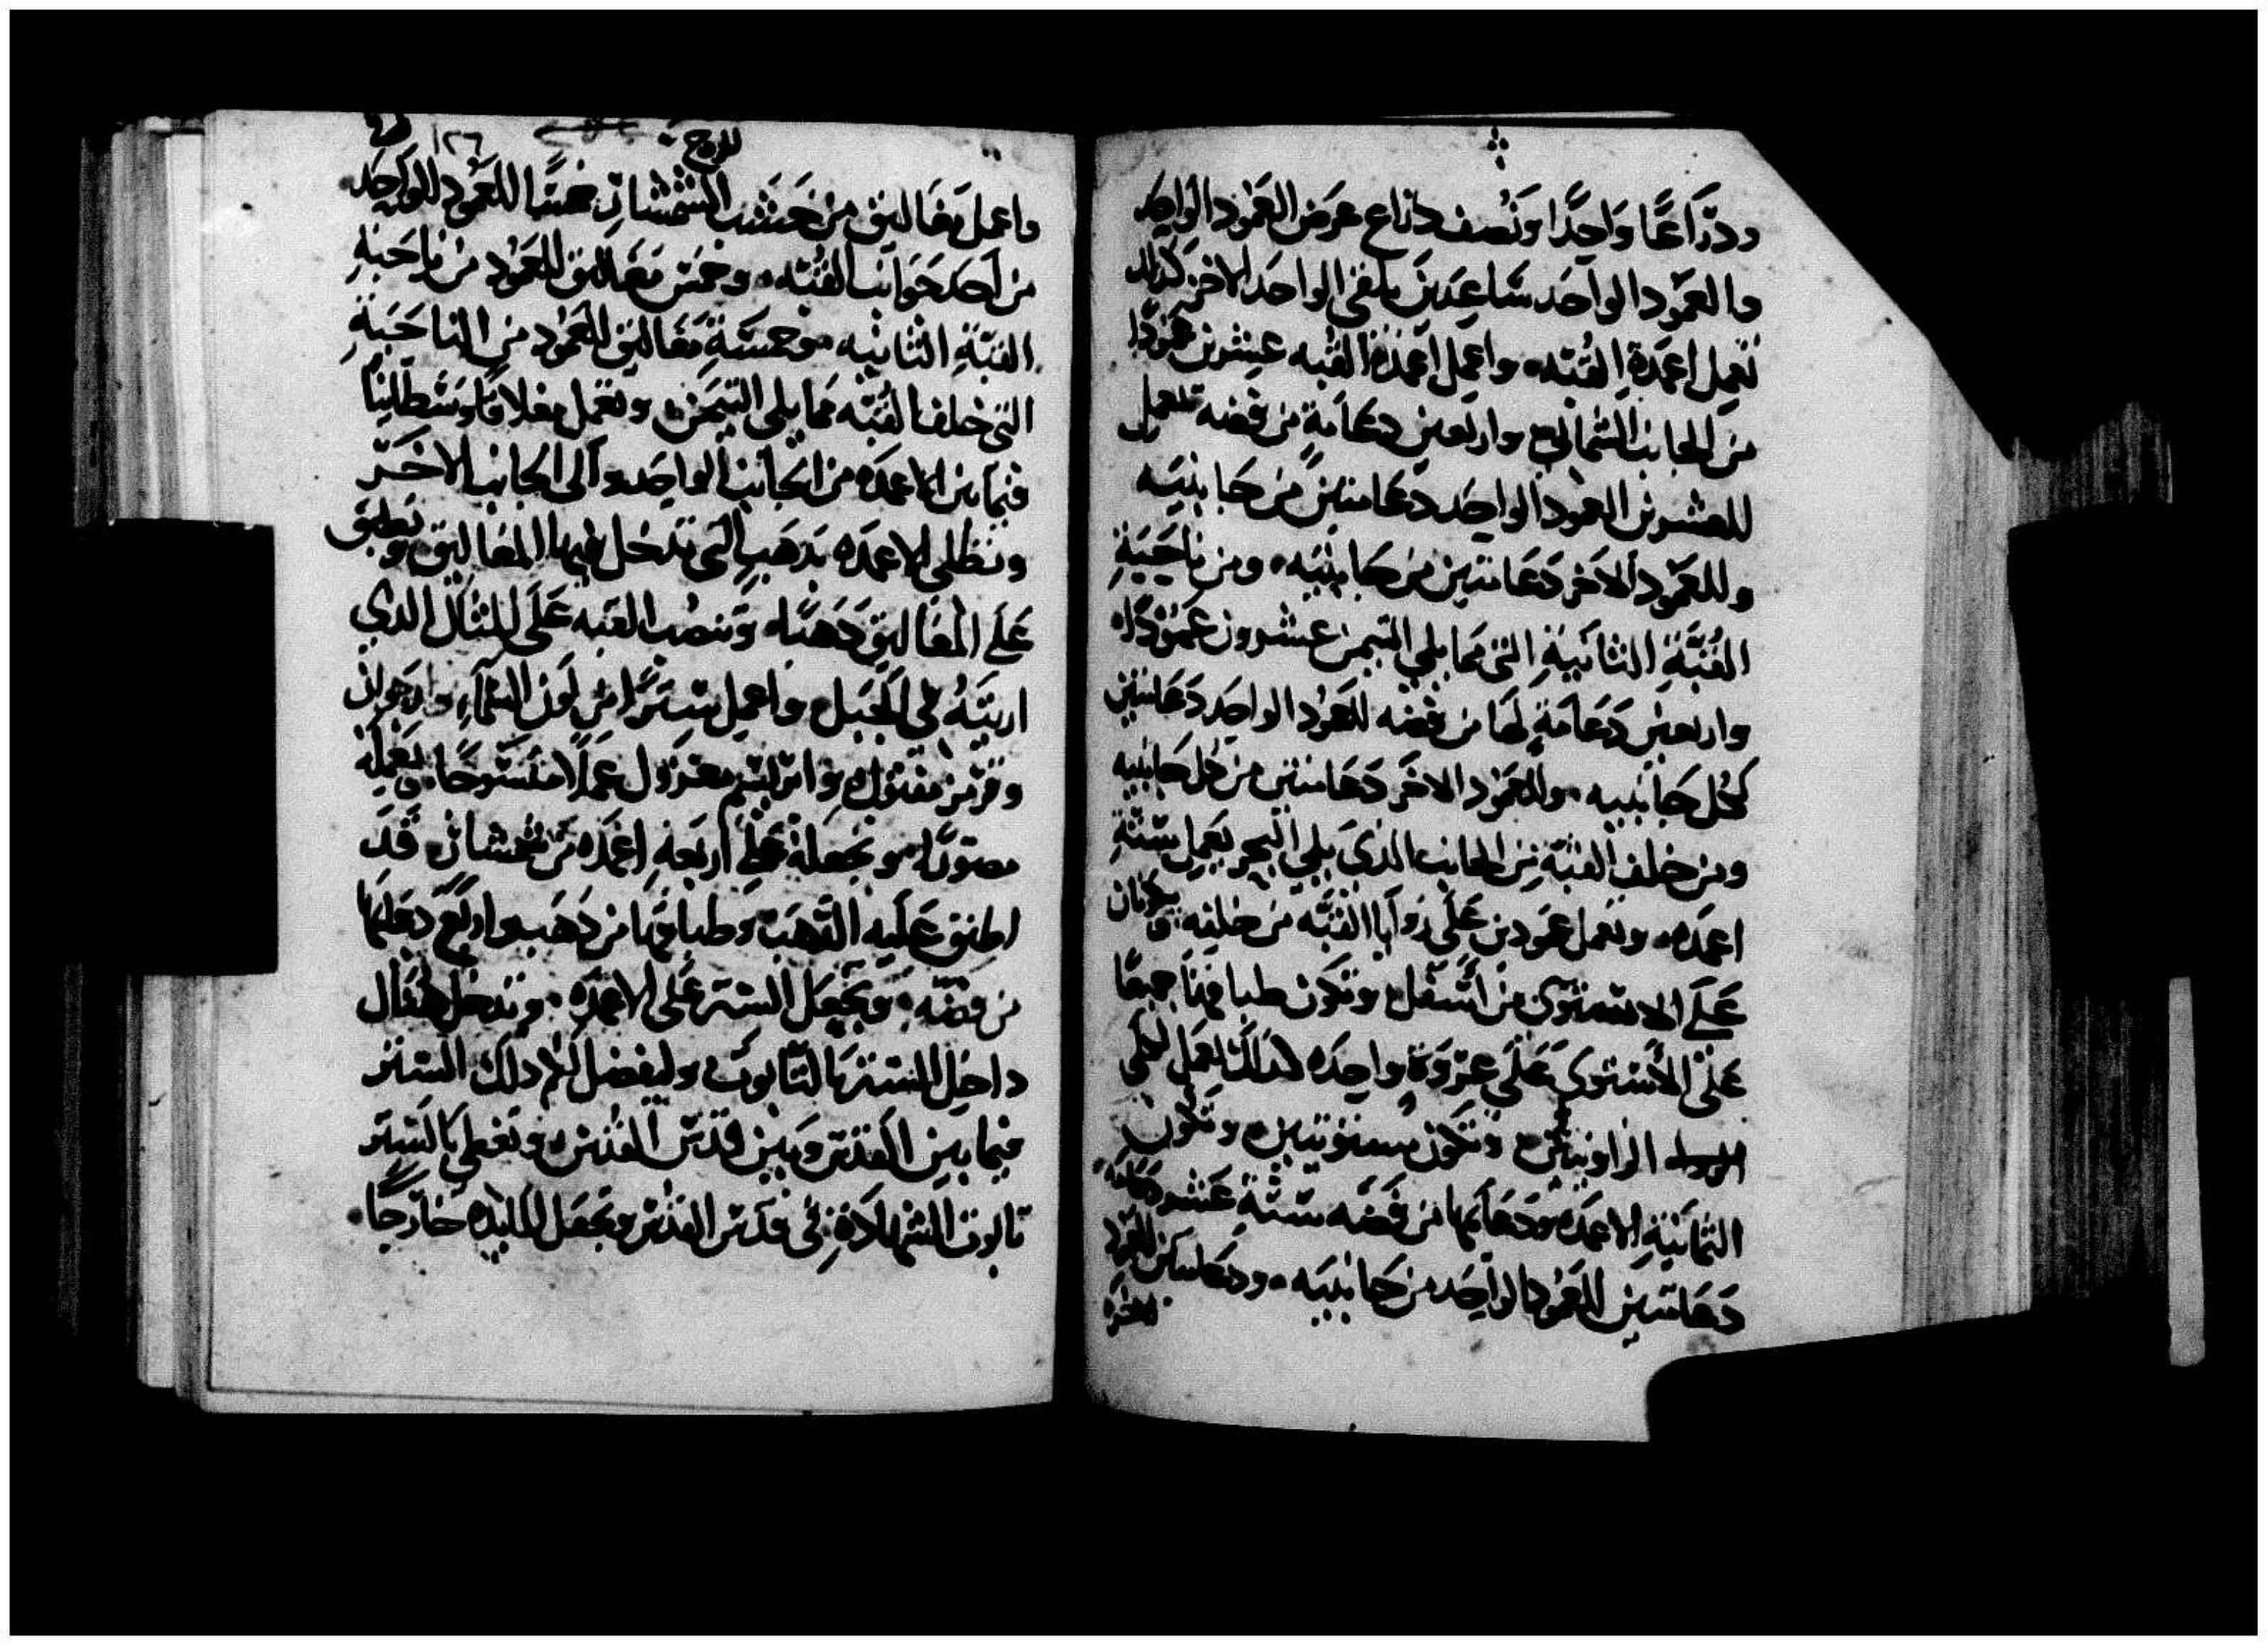 ودراعًا واحدًا ونصف دراع عرض العمود الواحد
والعمود الواحد ساعدين يلقى الواحد الاخر كدلك
تعمل اعمدة القبه واعمل اعمدة القبه عشرين عمودًا
من الجانب الشمالي واربعين دعامةٍ من فضه تعمل
للعشرين العمود الواحد دعامتين من جانبيه
وللعمود الاخر دعامتين من جانبيه ومن ناحيةِ
القُبَّةِ الثانيةِ التى مما يلي التيمن عشرون عمودًا
واربعين دعامةٍ لها من فضه للعمود الواحد دعامتين
لكل جانبيه وللعمود الاخر دعامتين من كل جانبيه
ومن خلف القبّة من الجانب الذى يلي البحر تعمل ستةِ
اعمده وتعمل عمودين على زوايا القبّه من خلفه
على الاستوى من اسفل وتكون طباقهنا جميعًا
على الاستوى على عروة واحده كدلك تعمل لكلى
الزاويتين وتكون مستويتين وتكون
الثمانيةِ الاعمده ودعايمها من فضه ستةَ عشر دعامه
دعامتين للعمود الواحد من جانبيه ودعامتين للعمود
الاخر
١٢٦
واعمل مغاليق من خشب الشمشار خمسًا للعمود الواحد
من احد جوانب القبّه وخمس مغاليق للعمود من ناحيةِ
القبّةِ الثانيه وخمسةِ مغاليق للعمود من الناحيةِ
التى خلف القبّه مما يلي التيمن وتعمل مغلاقًا وسطانيًا
فيما بين الاعمده من الجانب الواحد والى الجانب الاخر
وتطلى الاعمده بدهب التى تدخل فيها المغاليق وتطبق
على المغاليق دهبًا وتنصب القبه على المثال الدي
اريته في الجبل واعمل سترًا من لون السماء وارجوان
وقرمز مفتول وابريسم مغزول عملًا منسوجًا وتعمله
مصورًا وتجعله على اربعه اعمده من شمشار قد
اطبق عليه الدهب وطباقها من دهب واربع دعايمها
من فضه وتجعل الستر على الاعمده وتدخل هناك
داخل الستر تابوت وليفصل لكم دلك الستر
فيما بين القدس وبين قدس القدس وتغطي بالستر
تابوت الشهادةِ في قدس القدس وتجعل المايده خارجًا